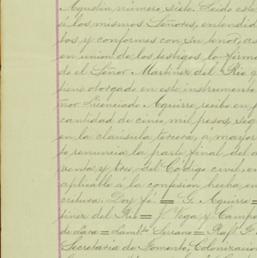 Agustin número siete. Leido este
á los mismos Señores, entendid
tos y conformes con su tenor, as
en union de los testigos lo firma
do el Señor Martinez del Rio q
tiene otorgado en este instrumento
ñor Licenciado Aguirre recibe en p
cantidad de cinco mil pesos, seg
en la cláusula tercera, á mayor
to renuncia la parte final del a
enta y tres del Código civil, en
aplicable á la confesion hecha en
critura: Doy fe = G. Aguirre =
tinez del Rio = J. Vega y Campo
de Lara = Lamb.º Serrano = Raf.l F.
Secretaria de Fomento, Colonizacion